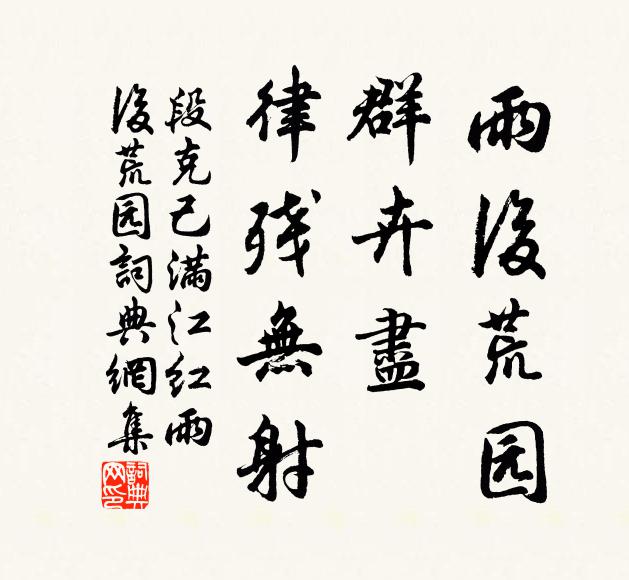 雨後荒园
群卉盡
律残無射
段克己满江红雨
後荒园詞典網集
詞典网印